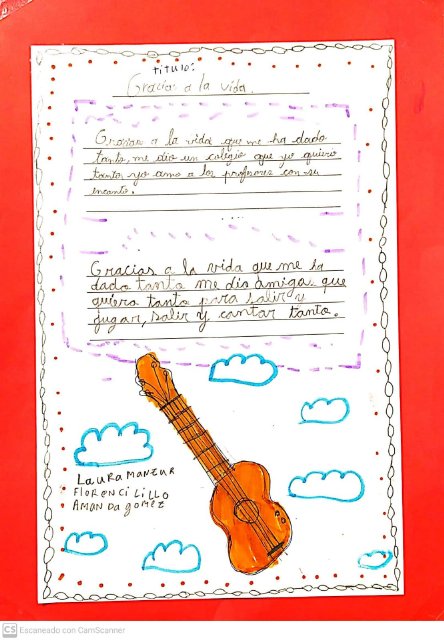 título:
Gracias a la vida.
Gracias a la vida que me ha dado
tanto, me dio un colegio que yo quiero
tanto yo amo a los profesores con su
encanto.
Gracias a la vida que me ha
dado tanto me dio amigas que
quiero tanto para salir y
jugar, salir y cantar tanto.
LAURA MANZUR
FLORENCI LILLO
AMANDA GOMEZ
CS Escaneado con CamScanner